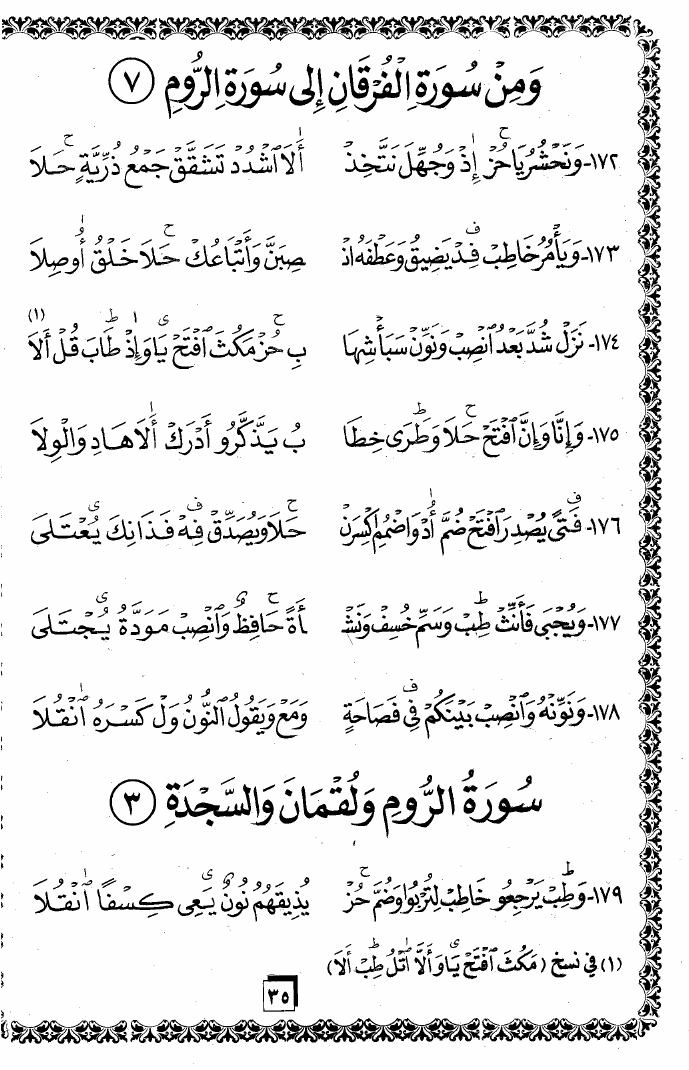 وَمِنْ سُورَةِ الْفُرْقَانِ إِلَى سُورَةِ الرُّومِ (٧)
١٧٢- وَنَحْشُرُ يَا حُزْ إِذْ وَجُهِّلَ نَتَّخِذْ أَلَا اشْدُدْ تَشَقَّقْ جَمْعُ ذُرِّيَّةٍ حَلَا
١٧٣- وَيَأْمُرُ خَاطِبْ فِدْ يَضِيقُ وَعَطْفَهُ انْ صِبَنَّ وَأَتْبَاعُكْ حَلَا خَلْقُ أُوصِلَا
١٧٤- نَزَلْ شُدَّ بَعْدُ انْصِبْ وَنَوِّنْ سَبَأْ شِهَا بِ حُزْ مَكُثَ افْتَحْ يَا وَإِذْ طَابَ قُلْ أَلَا (١)
١٧٥- وَإِنَّا وَإِنَّ افْتَحْ حَلَا وَطَرَى خِطَا بُ يَذَّكَّرُو أَدْرَكْ أَلَا هَادِ وَالْوِلَا
١٧٦- فَتًى يُصْدِرَ افْتَحْ ضُمَّ أُدْ وَاضْمُمِ اكْسِرَنْ حَلَا وَيُصَدِّقْ فِهْ فَذَانِكَ يُعْتَلَى
١٧٧- وَيُجْبَى فَأَنِّثْ طِبْ وَسَمِّ خُسِفْ وَنَشْـ ـأَةً حَافِظٌ وَانْصِبْ مَوَدَّةُ يُجْتَلَى
١٧٨- وَنَوِّنْهُ وَانْصِبْ بَيْنَكُمْ فِي فَصَاحَةٍ وَمَعْ وَيَقُولُ النُّونُ وَلْ كَسْرَهُ انْقُلَا
سُورَةُ الرُّومِ وَلُقْمَانَ وَالسَّجْدَةِ (٣)
١٧٩- وَطِبْ يَرْجِعُو خَاطِبْ لِتُرْبُوا وَضُمَّ حُزْ يُذِيقَهُمُ نُونٌ يَعِي كِسْفًا انْقُلَا
(١) فى نسخ (مَكُثَ افْتَحْ يَا وَأَلَّا اتْلُ طِبْ أَلَا)
٣٥